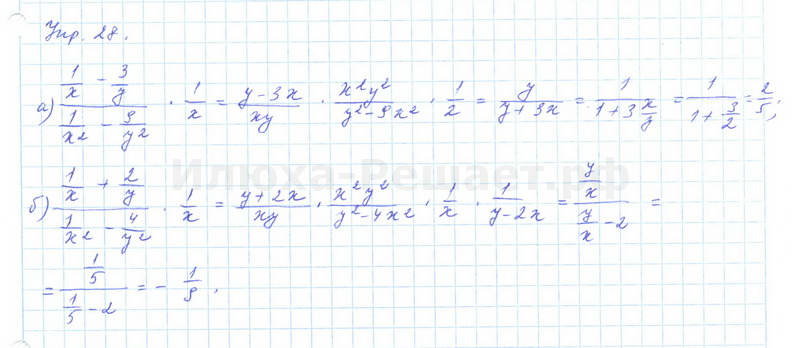 Упр. 28.
а) (1/x - 3/y)/(1/x² - 9/y²) · 1/x = (y-3x)/(xy) · (x²y²)/(y²-9x²) · 1/2 = y/(y+3x) = 1/(1+3x/y) = 1/(1+3/2) = 2/5;
Илюха-Решает.рф
б) (1/x + 2/y)/(1/x² - 4/y²) · 1/x = (y+2x)/(xy) · (x²y²)/(y²-4x²) · 1/x · 1/(y-2x) = (y/x)/(y/x - 2) =
= (1/5)/(1/5 - 2) = - 1/9.